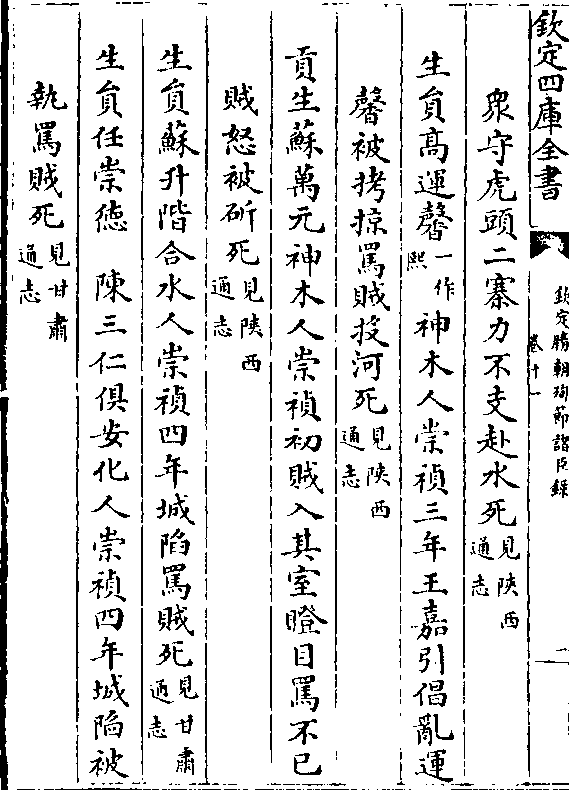 欽定四庫全書
欽定勝朝殉節諸臣録
卷十一
二
衆守虎頭二寨力不支赴水死見陜西通志
生員髙運馨一作熙神木人崇禎三年王嘉引倡亂運
馨被拷掠罵賊投河死見陜西通志
貢生蘇萬元神木人崇禎初賊入其室瞪目罵不已
賊怒被斫死見陜西通志
生員蘇升階合水人崇禎四年城陷罵賊死見甘肅通志
生員任崇德　陳三仁俱安化人崇禎四年城陷被
執罵賊死見甘肅通志